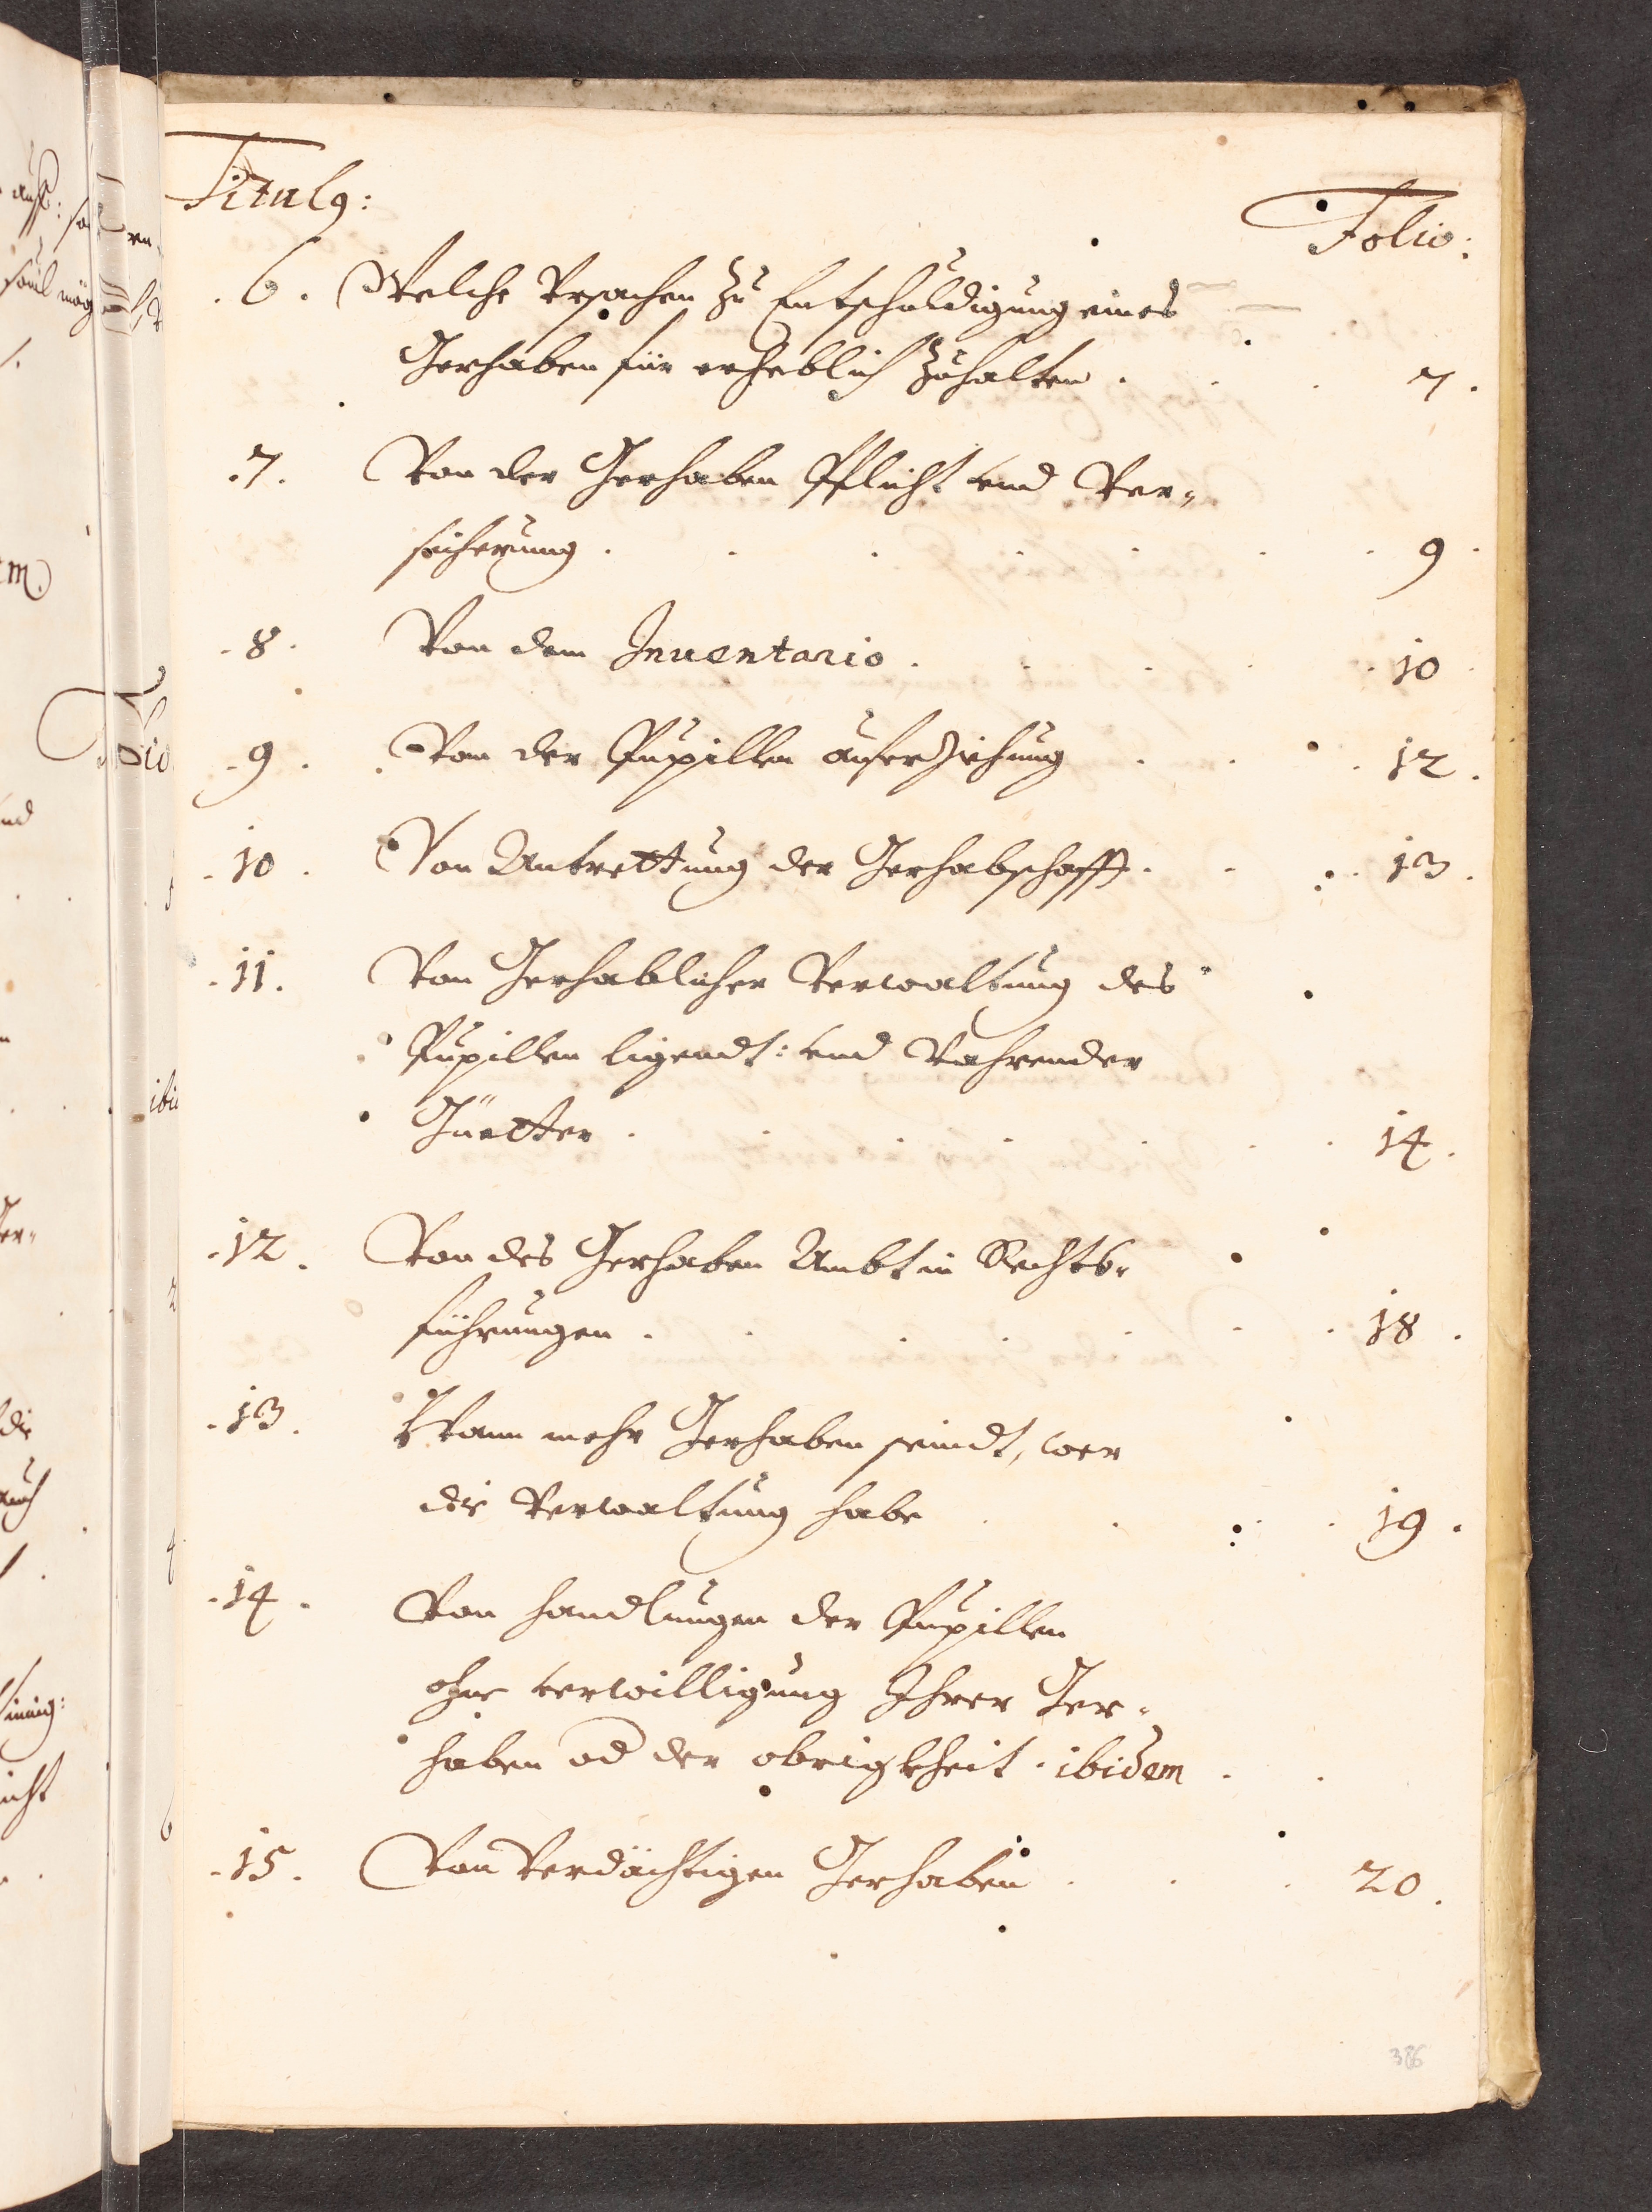 Titul9:
Folio:
.6. Welche Vrsachen zu Entschuldigung eines
Gerhaben für erheblich zuhalten . . . 7.
.7. Von der Gerhaben Pflicht vnd Ver„
sicherung . . . . . . . 9.
.8. Von dem Inuentario . . . . . 10
.9. Von der Pupillen auferziehung . . . 12.
.10. Von Antrettung der Gerhabschafft . . . 13.
.11. Von Gerhablicher Verwaltung des
Pupillen ligendt: vnd Vahrender
Güetter . . . . . . 14.
.12. Von des Gerhaben Ambt in Rechts„
führungen . . . . . . . 18.
.13. Wann mehr Gerhaben seindt, wer
die Verwaltung habe . . . . 19.
.14. Von handlungen der Pupillen
ohne verwilligung Ihrer Ger„
haben od der obrigkheit . ibidem .
.15. Von Verdächtigen Gerhaben . . . 20.
386